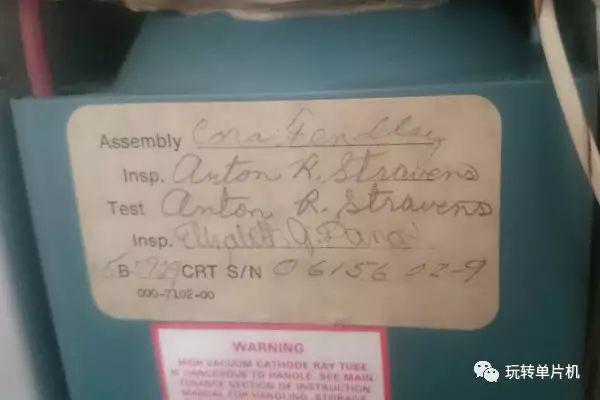 Assembly Cora Fendley
Insp. Anton R. Stravens
Test Anton R. Stravens
Insp. Elizabeth G.
B CRT S/N 0615602-9
000-7102-00
WARNING
HIGH VACUUM CATHODE RAY TUBE
IS DANGEROUS TO HANDLE. SEE MAIN
TENANCE SECTION OF INSTRUCTION
MANUAL FOR HANDLING, STORAGE
玩转单片机